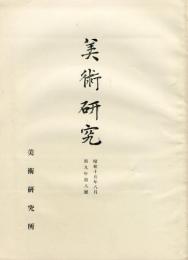 美術研究
昭和十五年八月
第九年第八號
美術研究所